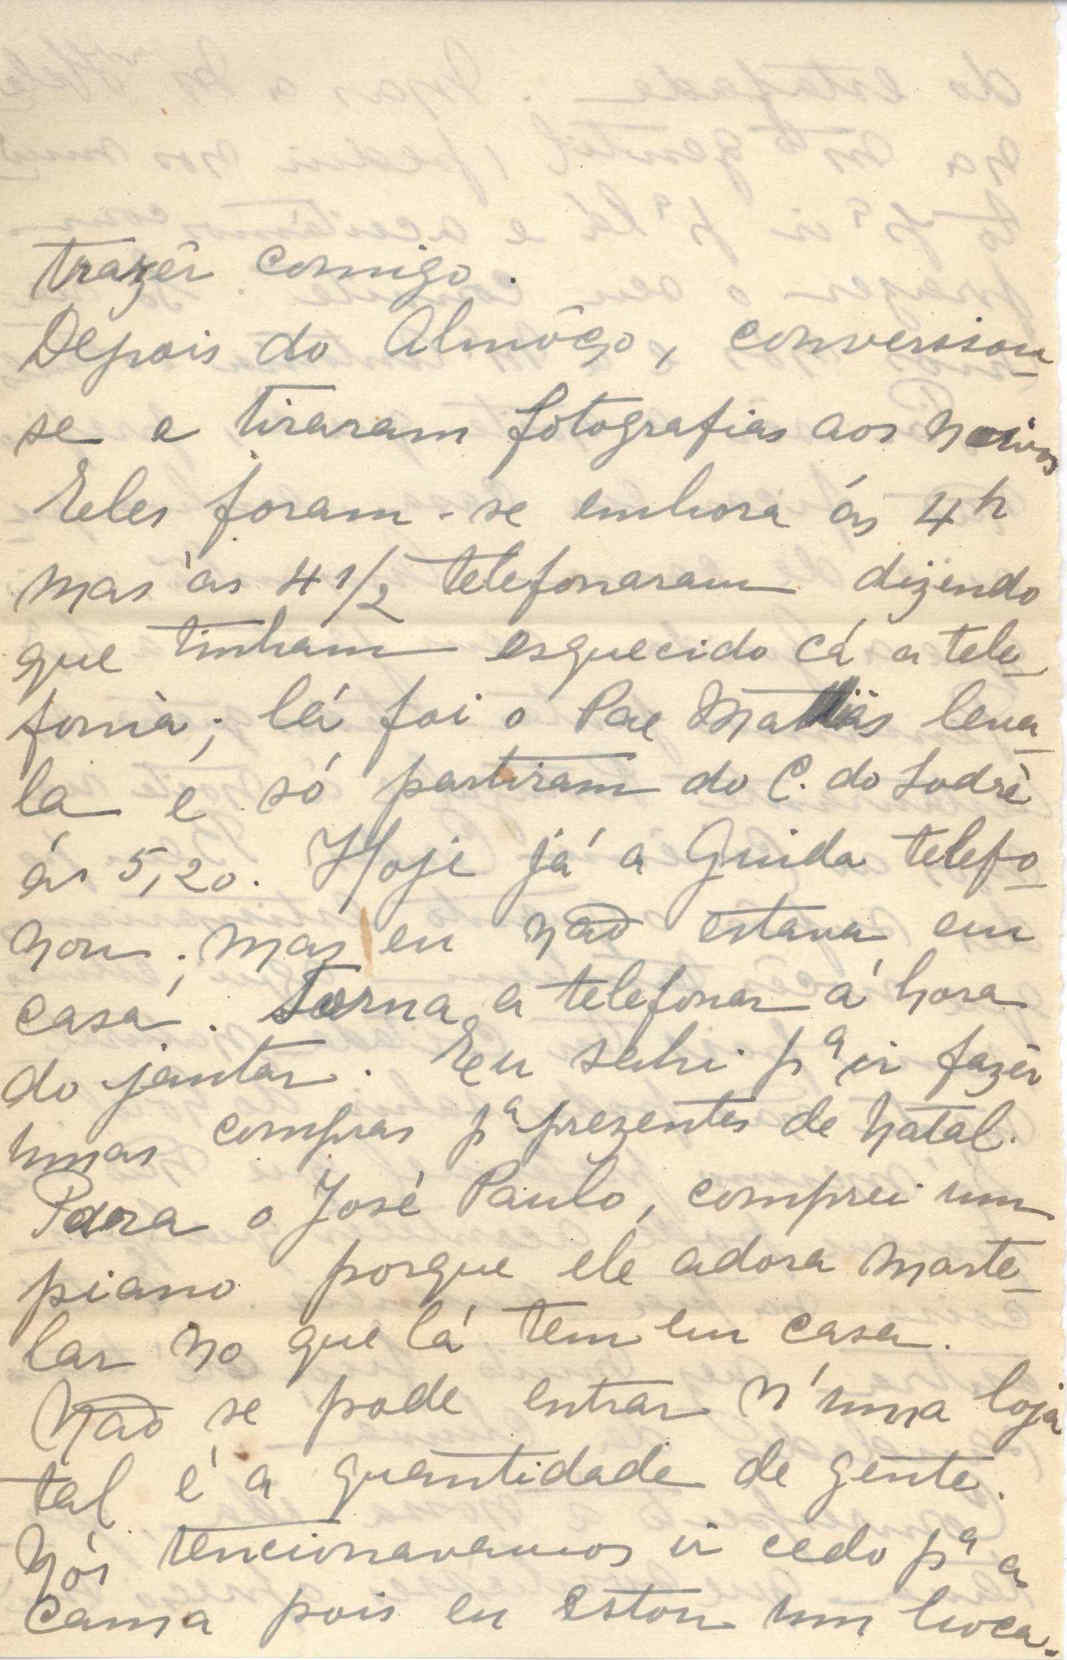 trazêr comigo.
Depois do Almôço, conversou-
se e tiraram fotografias aos noivos
Eles foram-se embora ás 4h
mas ás 4 1/2 telefonaram dizendo
que tinham esquecido cá a tele-
fonia; lá foi o Pae Matias leva-
la e só partiram do C. do Sodré
ás 5,20. Hoje já a Guida telefo-
nou; mas eu não estava em
casa. Torna a telefonar á hora
do jantar. Eu sahi pª ir fazêr
umas compras pª prezentes de Natal.
Para o José Paulo, comprei um
piano porque ele adora marte-
lar no que lá tem em casa.
Não se pode entrar n'uma loja
tal é a quantidade de gente.
Nós tencionavamos ir cedo pª a
cama pois eu estou um boca-